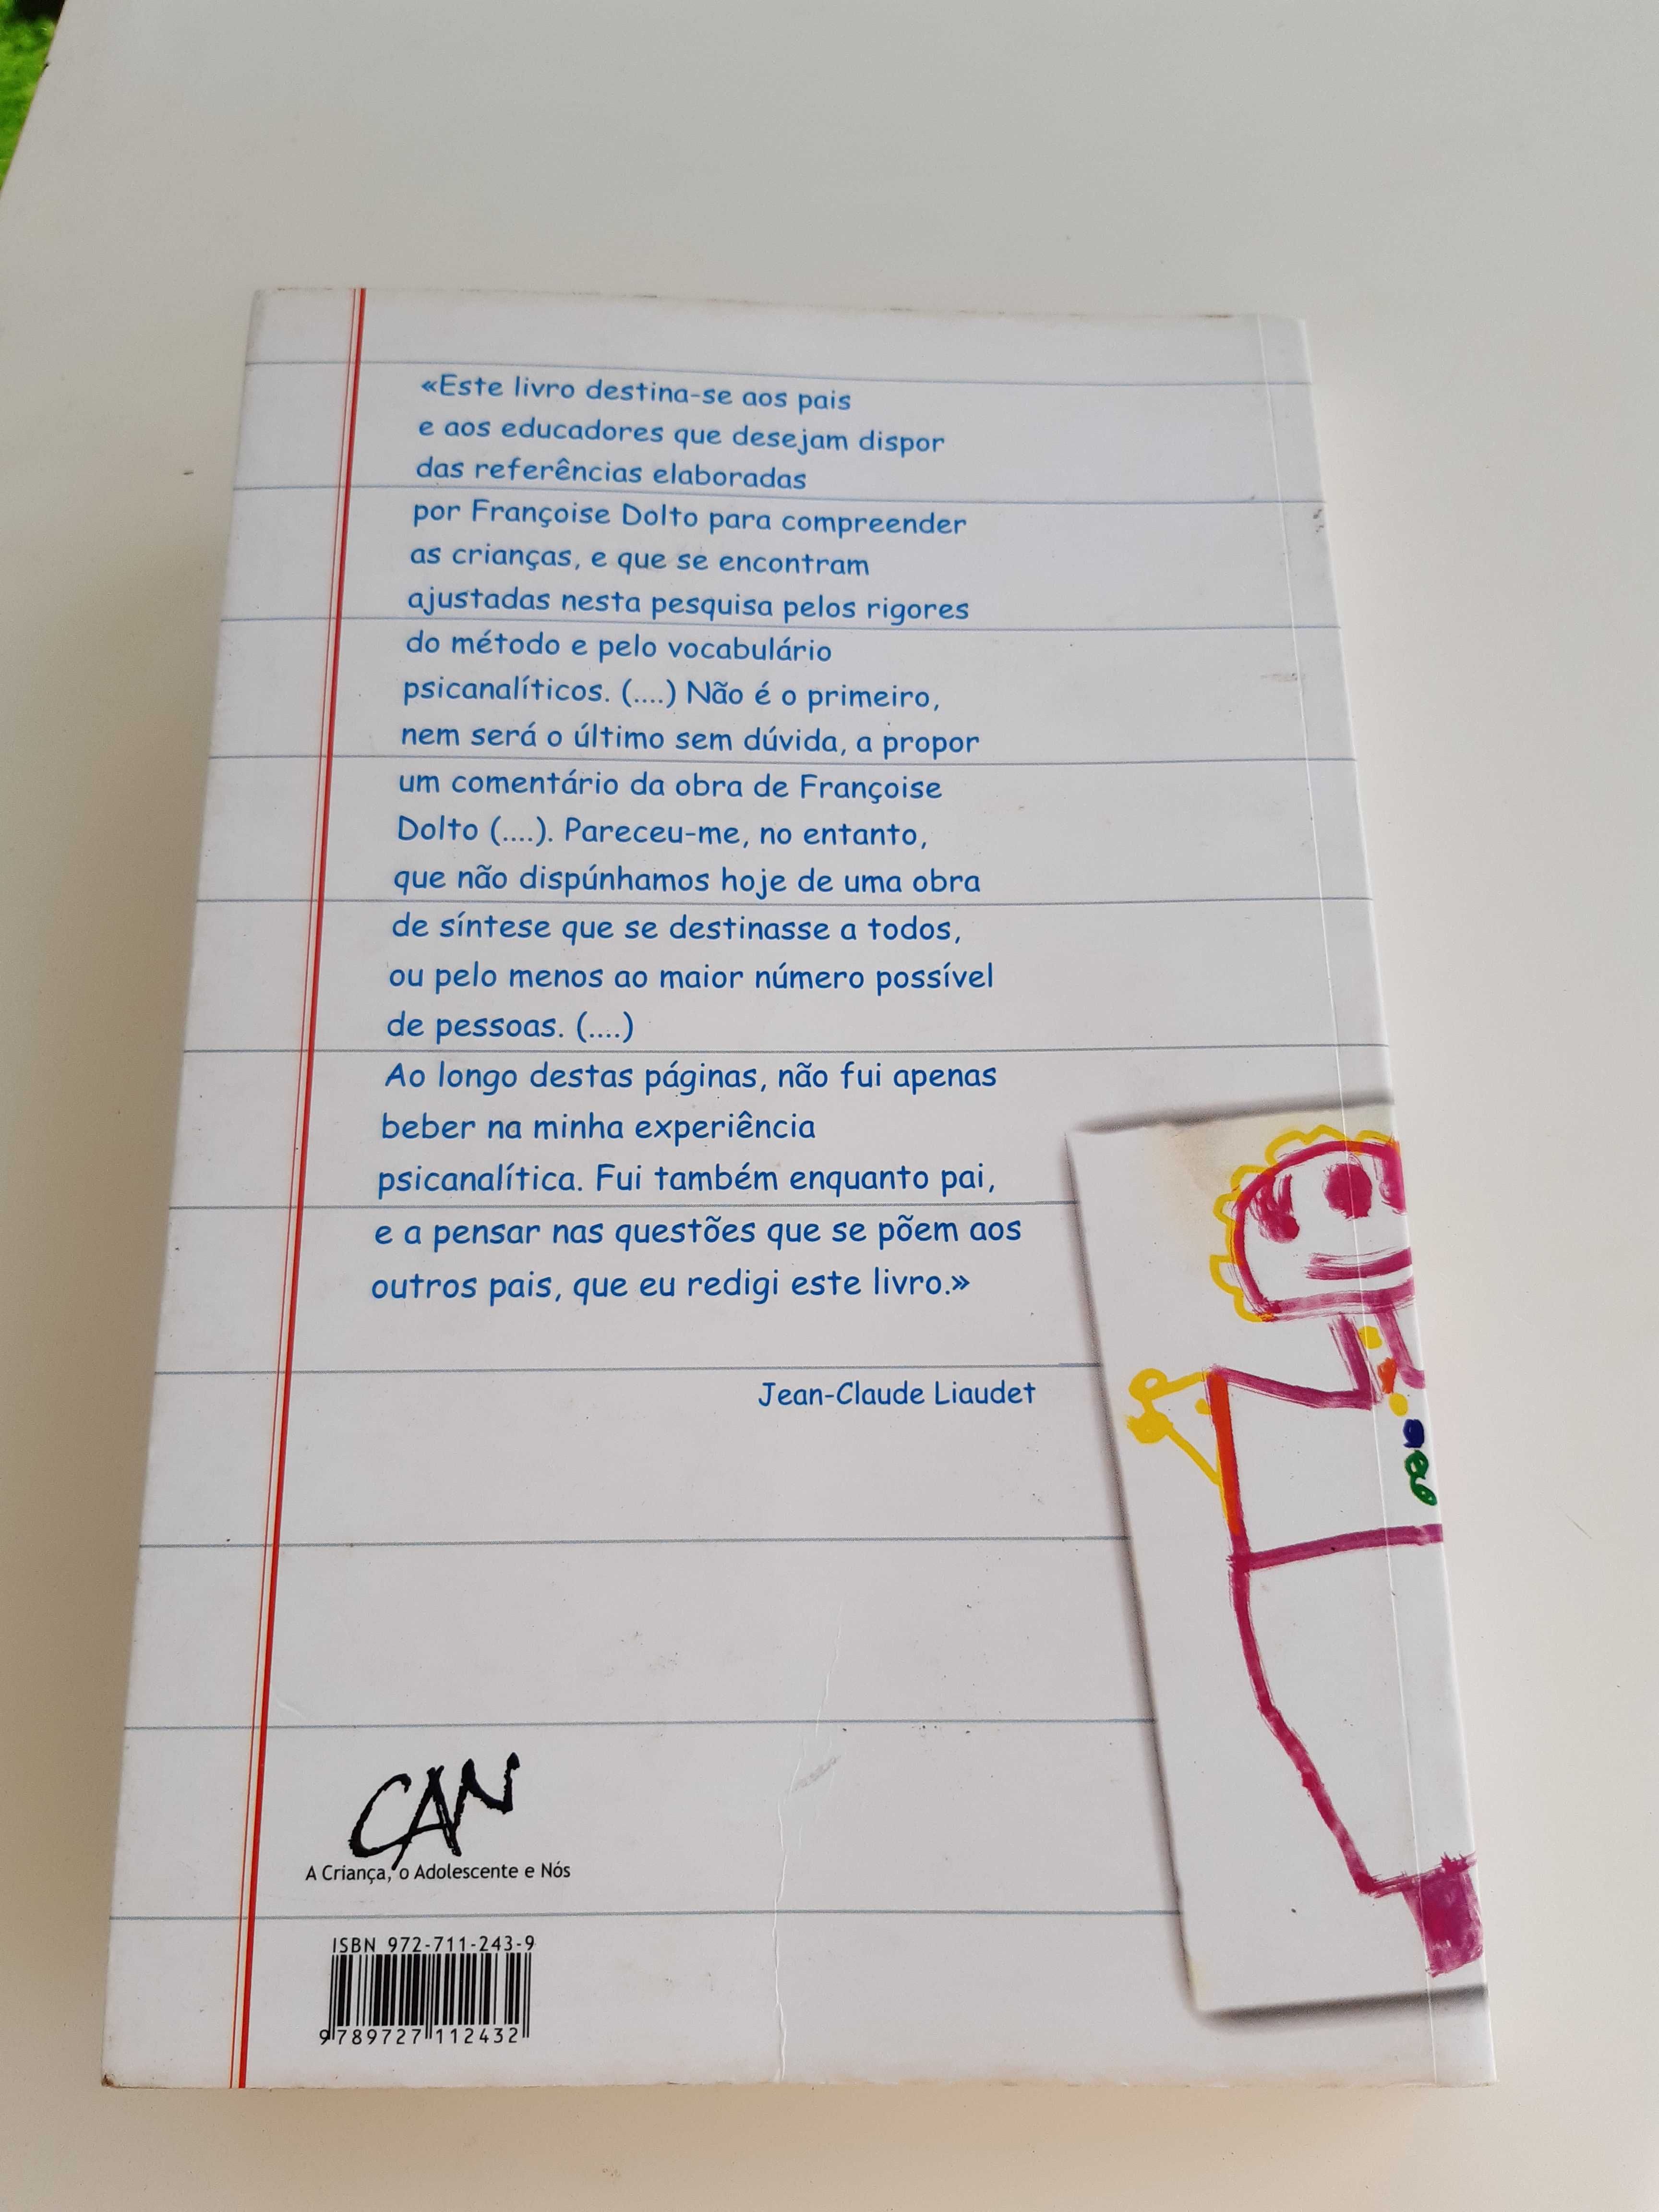 «Este livro destina-se aos pais
e aos educadores que desejam dispor
das referências elaboradas
por Françoise Dolto para compreender
as crianças, e que se encontram
ajustadas nesta pesquisa pelos rigores
do método e pelo vocabulário
psicanalíticos. (....) Não é o primeiro,
nem será o último sem dúvida, a propor
um comentário da obra de Françoise
Dolto (....). Pareceu-me, no entanto,
que não dispúnhamos hoje de uma obra
de síntese que se destinasse a todos,
ou pelo menos ao maior número possível
de pessoas. (....)
Ao longo destas páginas, não fui apenas
beber na minha experiência
psicanalítica. Fui também enquanto pai,
e a pensar nas questões que se põem aos
outros pais, que eu redigi este livro.»
Jean-Claude Liaudet
CAN
A Criança, o Adolescente e Nós
ISBN 972-711-243-9
9789727112432